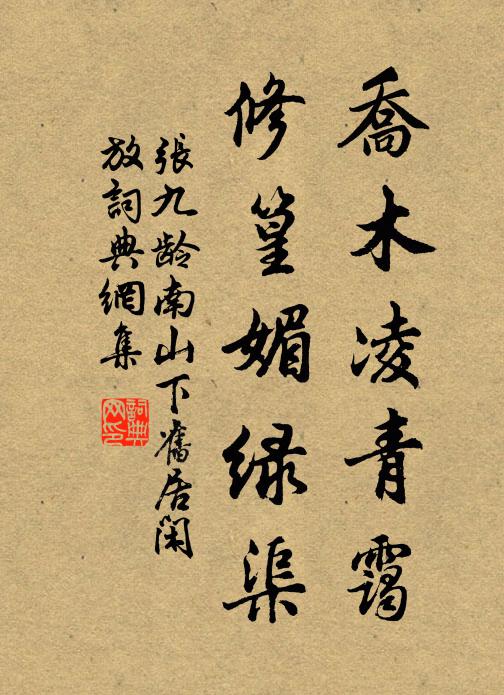 喬木凌青靄
修篁媚緑渠
張九龄南山下舊居閑
放詞典網集
詞典网印